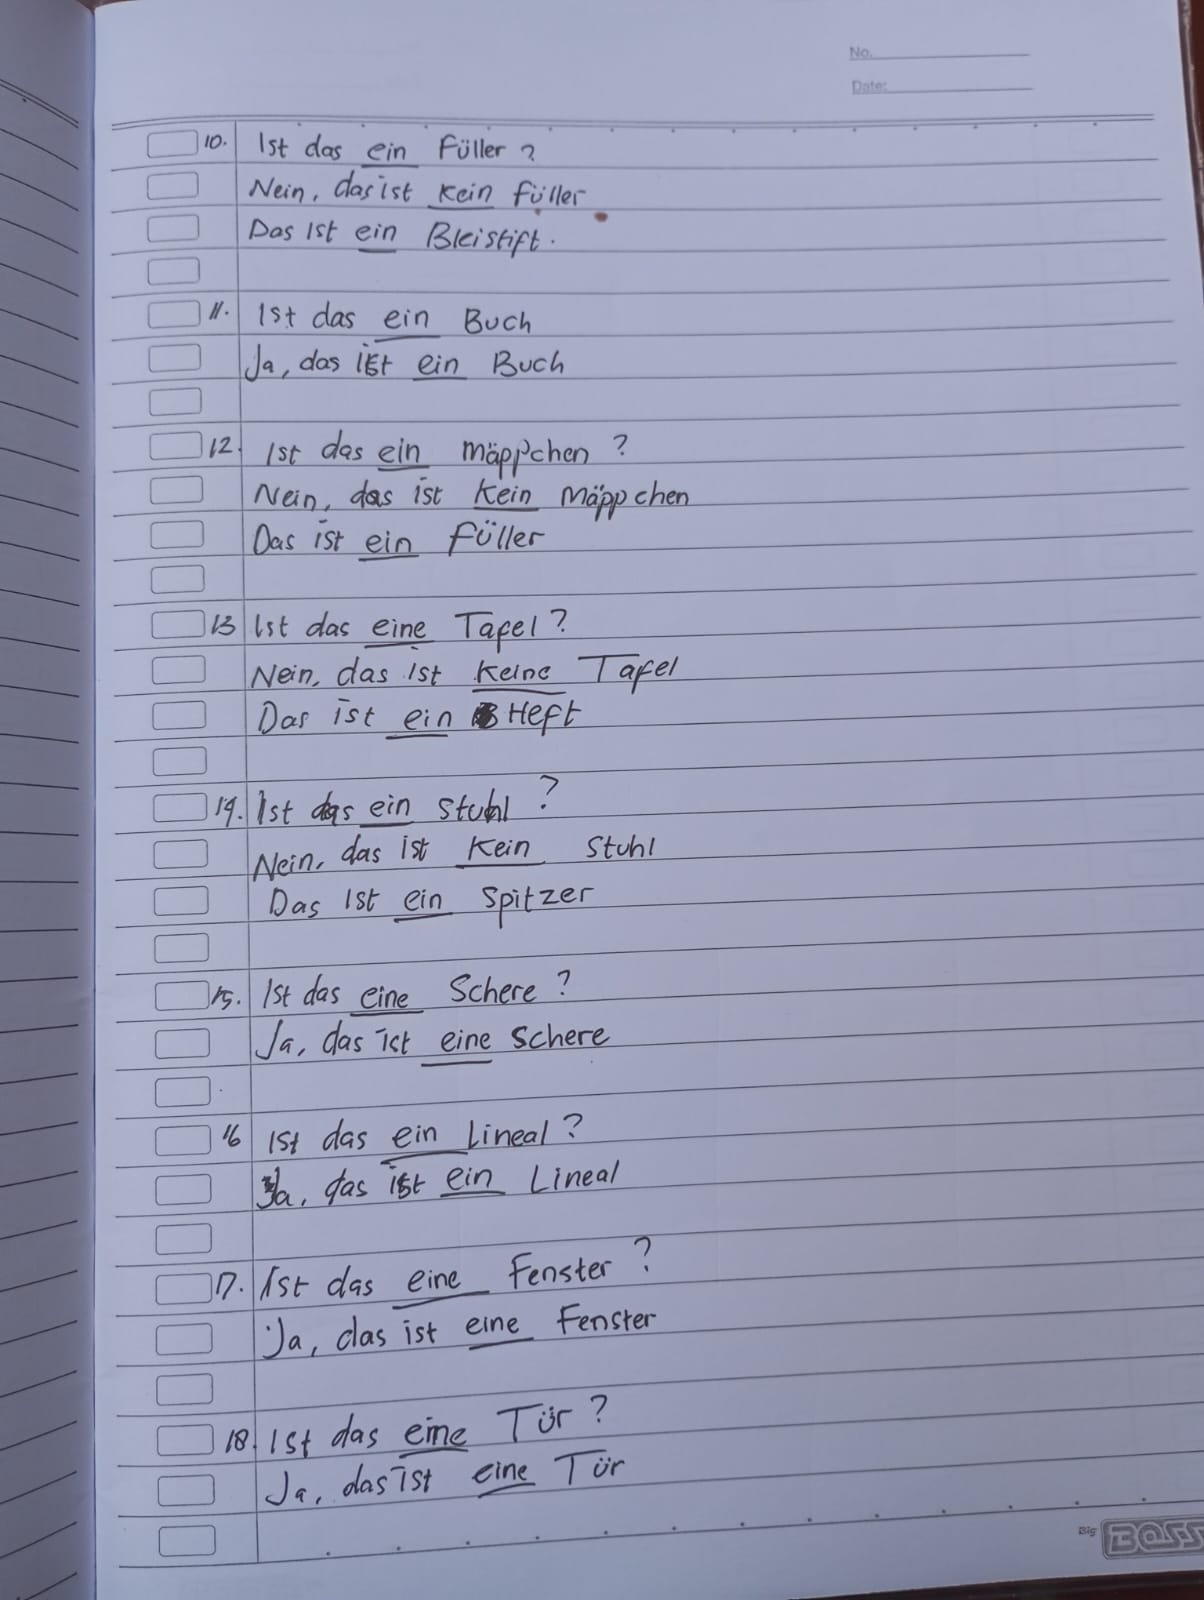 No.
Date:
10. Ist das ein Füller?
Nein, das ist kein füller
Das Ist ein Bleistift.
11. Ist das ein Buch
Ja, das ist ein Buch
12. Ist das ein mäppchen?
Nein, das ist kein mäppchen
Das ist ein füller
13 Ist das eine Tafel?
Nein, das ist keine Tafel
Das ist ein Heft
14. Ist das ein stuhl?
Nein, das ist kein stuhl
Das Ist ein spitzer
15. Ist das eine Schere?
Ja, das ist eine schere
16 Ist das ein Lineal?
Ja, das ist ein Lineal
17. Ist das eine Fenster?
Ja, das ist eine Fenster
18. Ist das eine Tür?
Ja, das ist eine Tür
Big BOSS